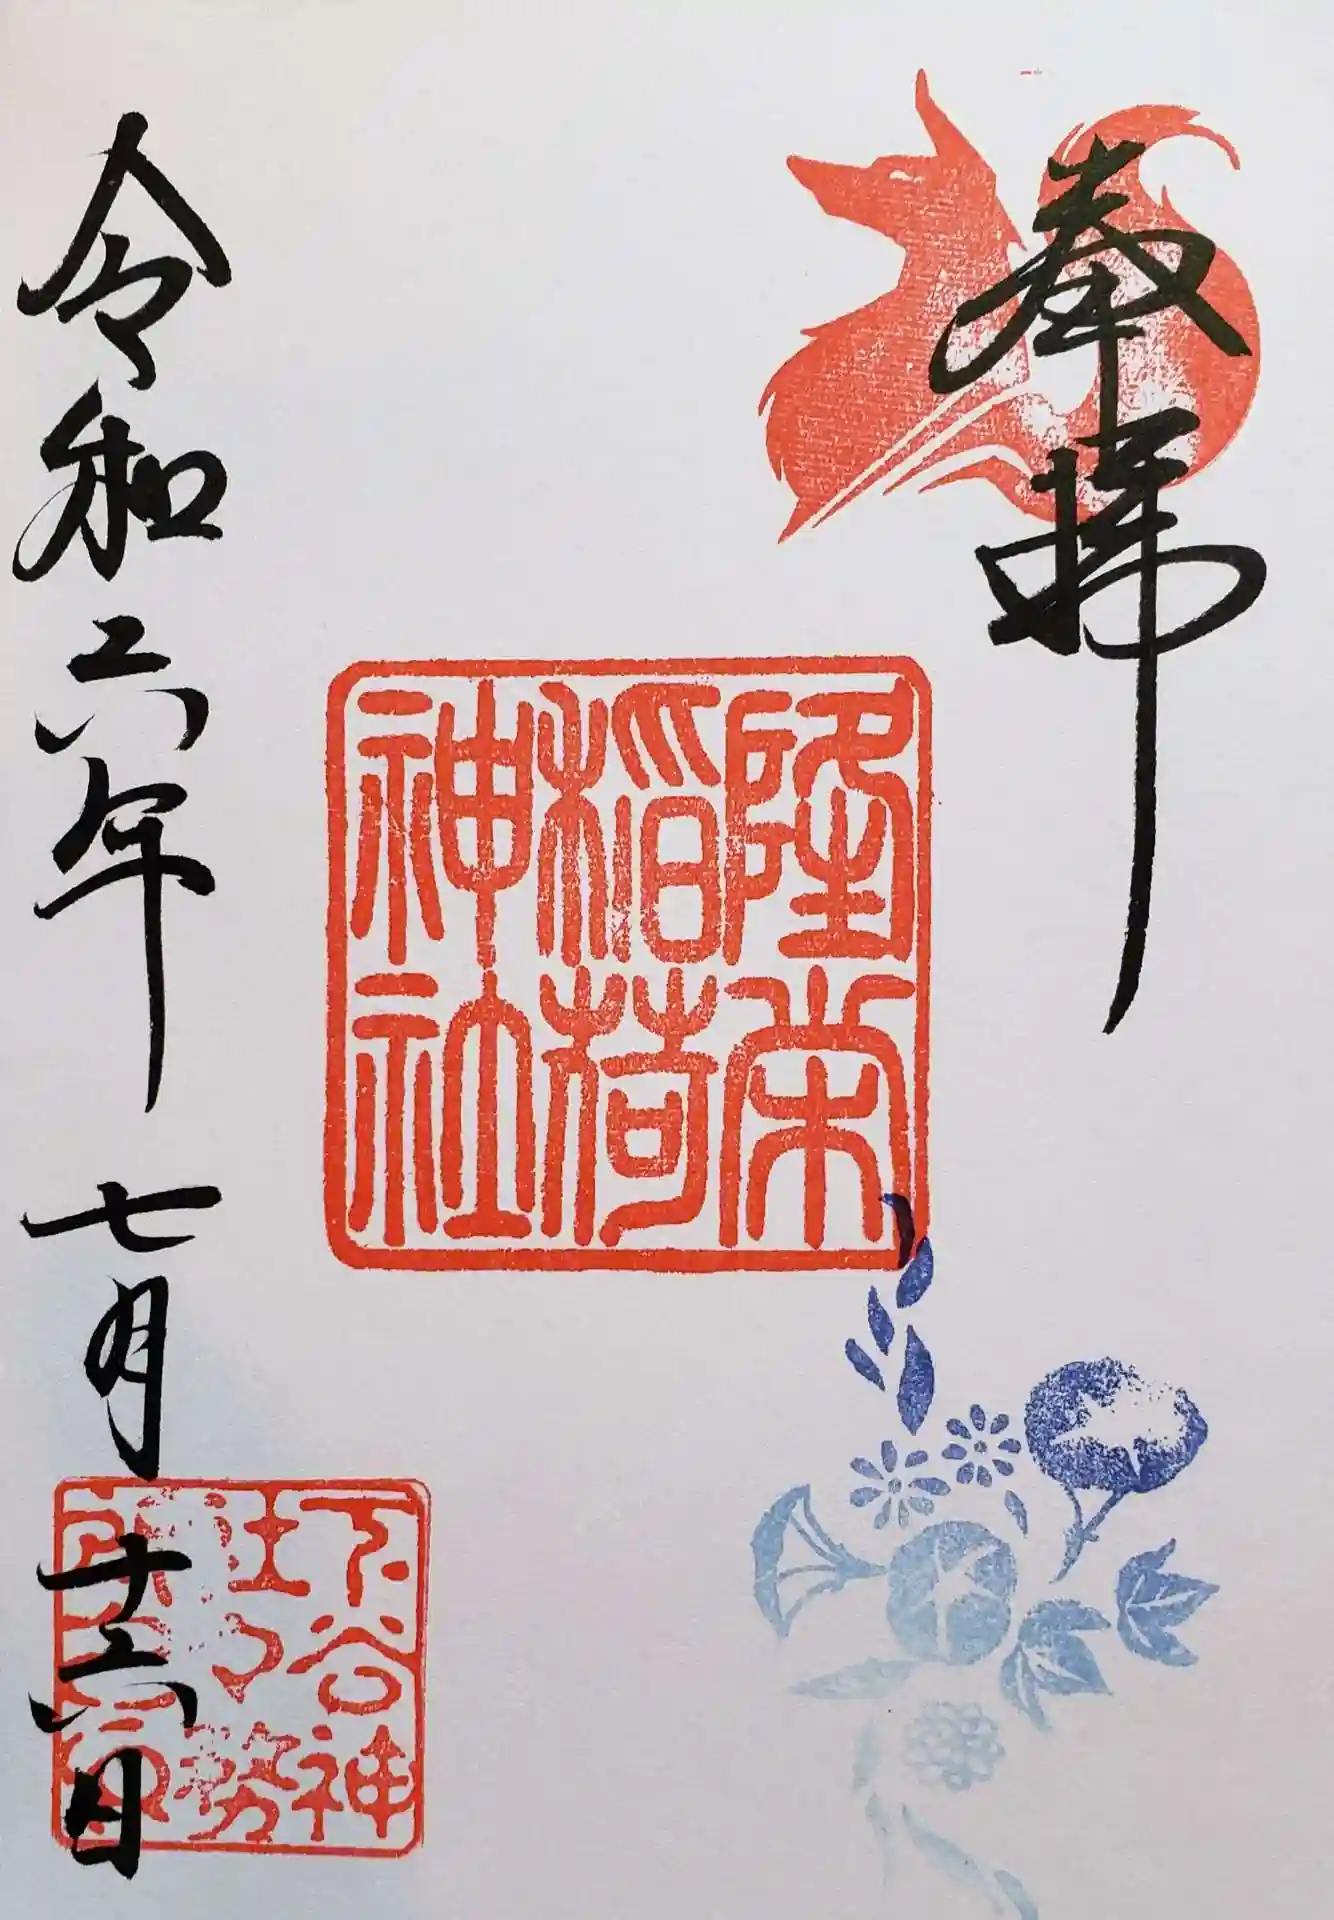 奉拝
隆栄
稲荷
神社
令和六年七月十六日
下谷神
社